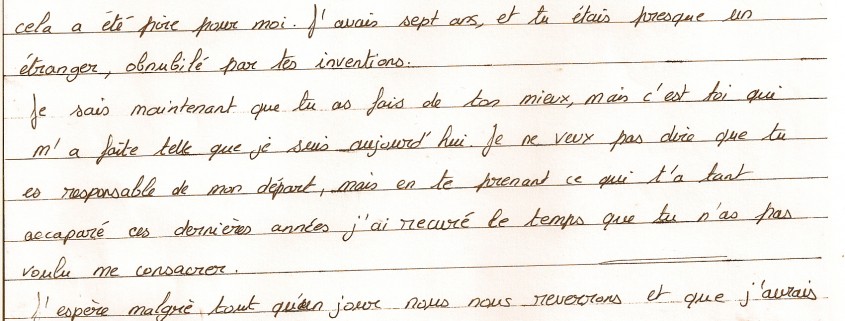 cela a été pire pour moi. J'avais sept ans, et tu étais presque un
étranger, obnubilé par tes inventions.
Je sais maintenant que tu as fais de ton mieux, mais c'est toi qui
m'a faite telle que je suis aujourd'hui. Je ne veux pas dire que tu
es responsable de mon départ, mais en te prenant ce qui t'a tant
accaparé ces dernières années j'ai recuré le temps que tu n'as pas
voulu me consacrer.
J'espère malgré tout qu'un jour nous nous reverrons et que j'aurais